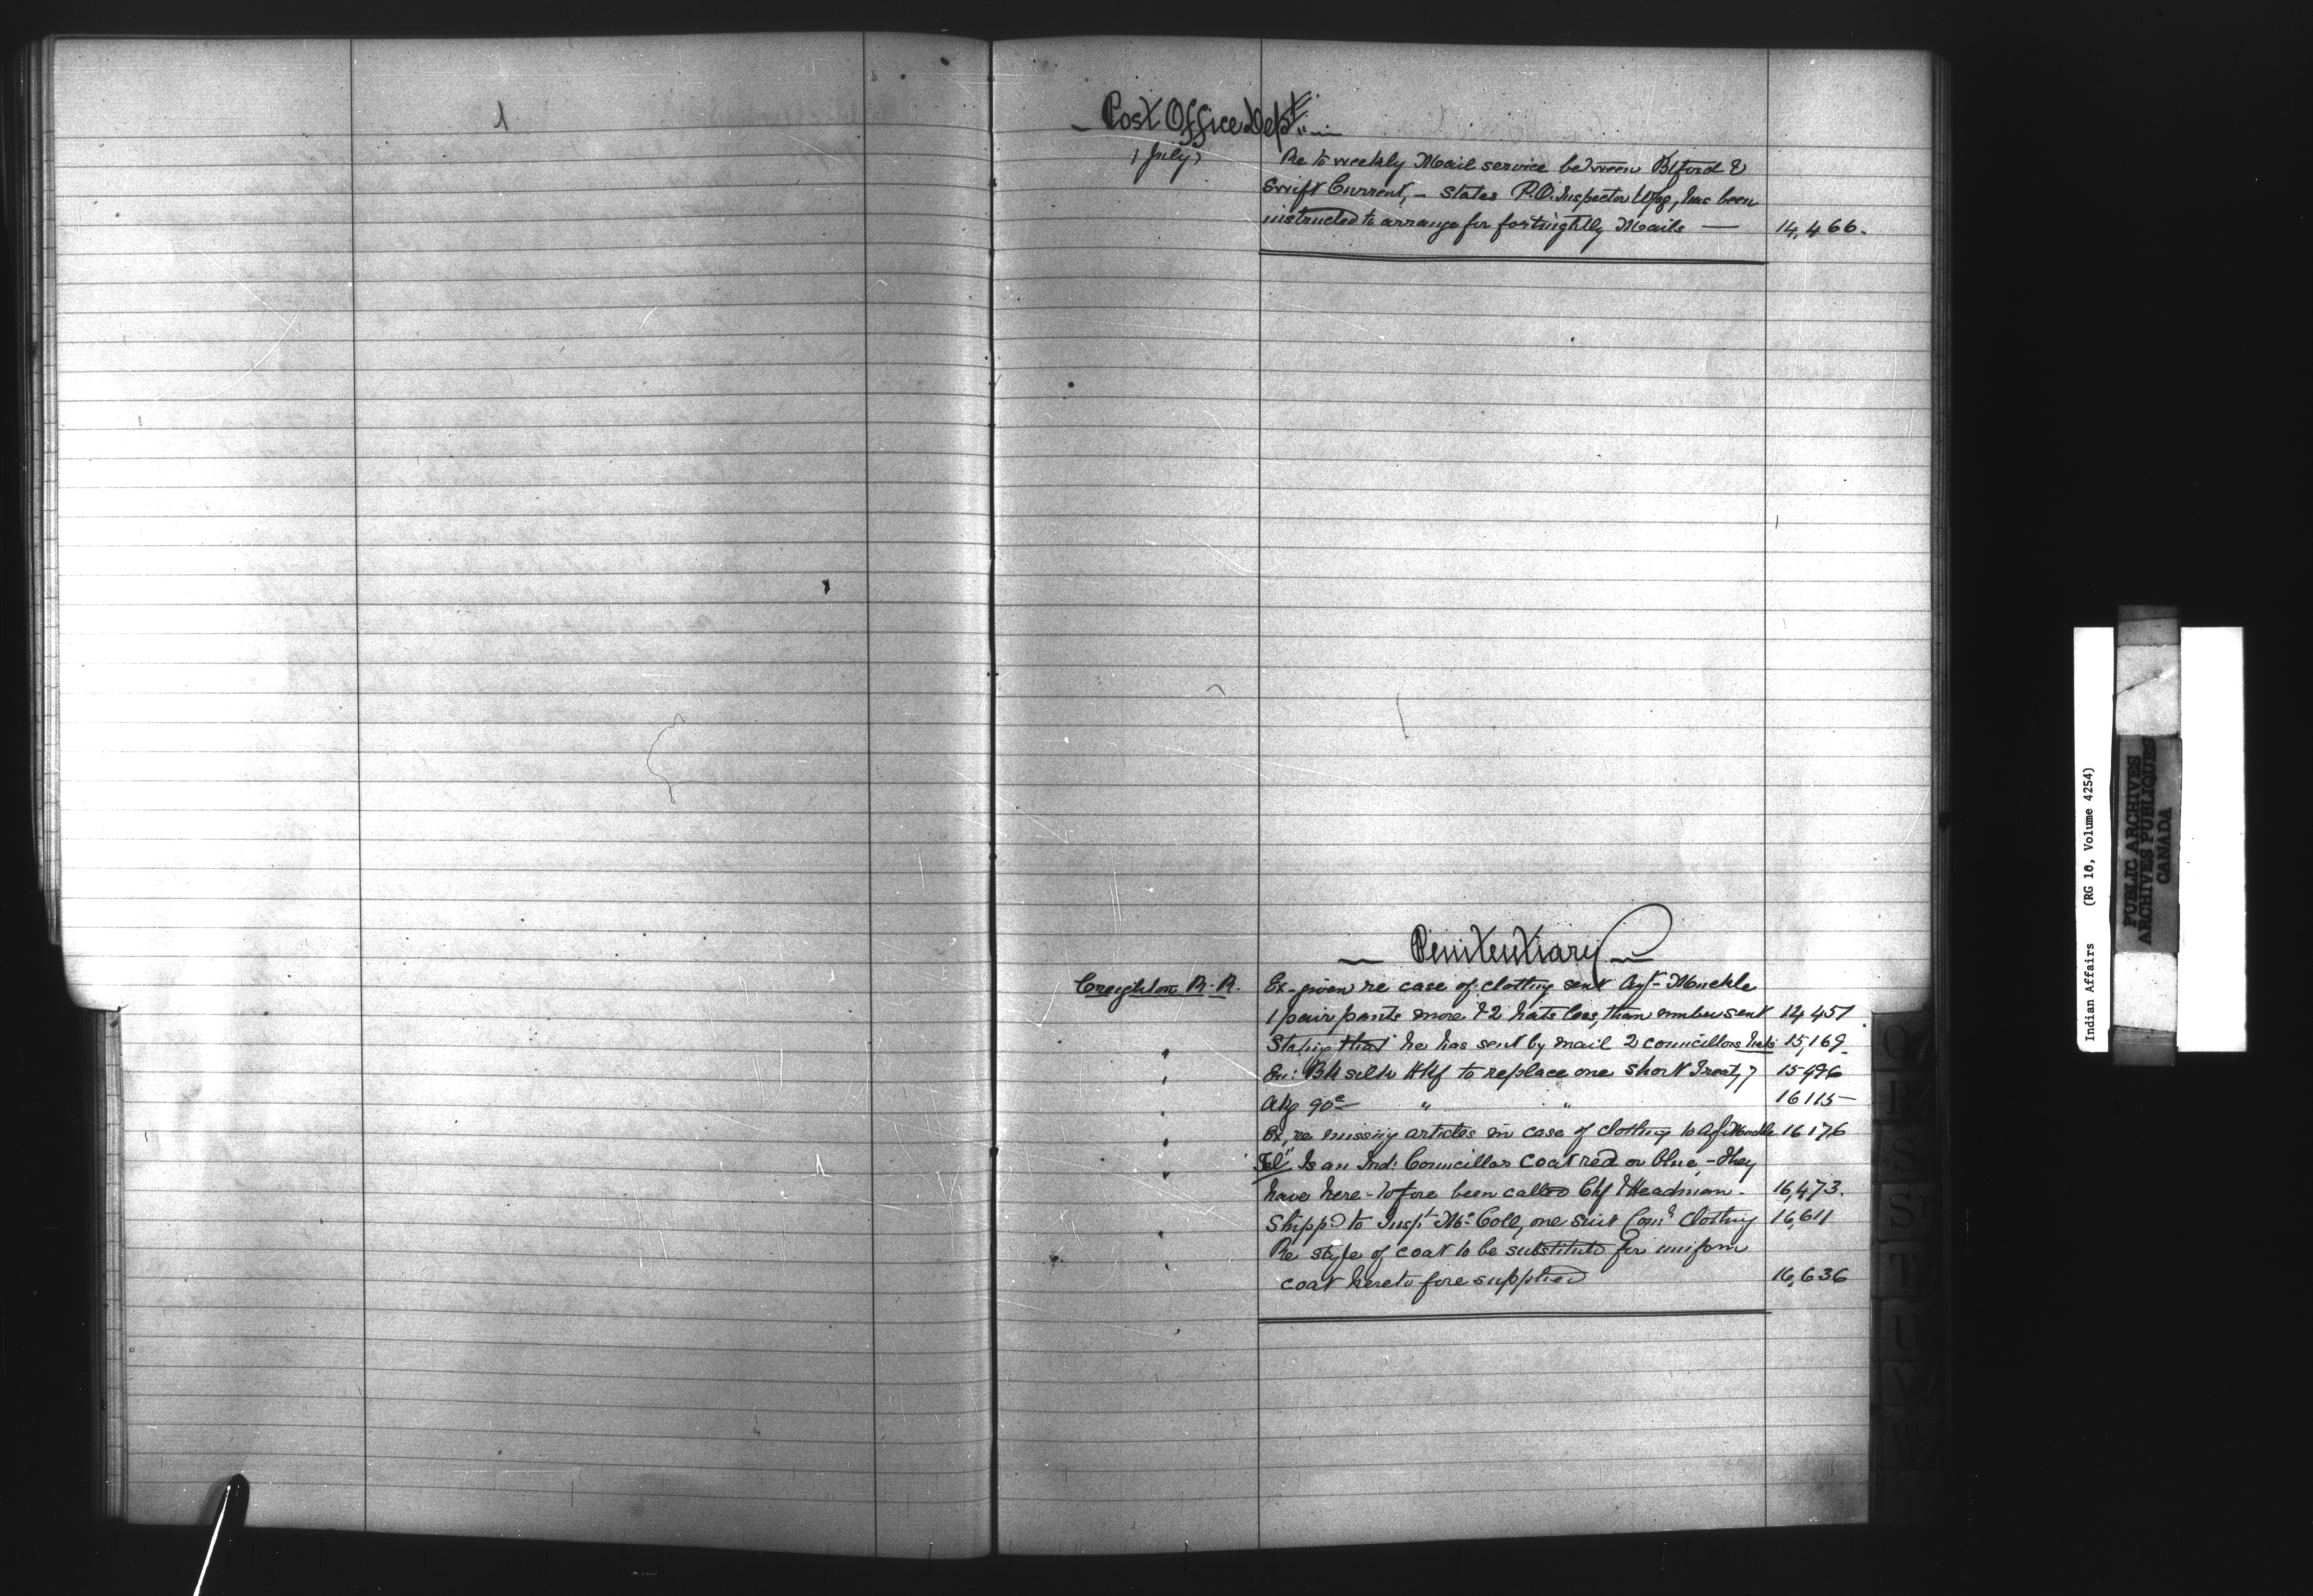 Post Office Dept.
1 July
Re to weekly Mail service between Btford &
Swift Current, - States P.O. Inspector Wpg, has been
instructed to arrange for fortnightly Mails — 14,466.
Penitentiary
Creighton R. R. Ex- given re case of clothing sent Agt- Muckle
1 pair pants more & 2 hats less, than number sent 14 457
" Stating that he has sent by mail 2 councillors hats 15,169
" En: Bk silk Hkf to replace one short Treaty 7 15496
" Akg 90c " " 16115
" Ex, re missing articles in case of clothing to Agt Muckle 16176
" Tel" Is an Ind: Councillor coat red or blue, - They
have here-tofore been called Chf & Headman. 16,473.
" Shippd to Inspt Mc Coll, one suit clothing 16,611
" Re style of coat to be substituted for uniform
coat heretofore supplied 16,636
Indian Affairs (RG 10, Volume 4254)
PUBLIC ARCHIVES
ARCHIVES PUBLIQUES
CANADA
P
S
T
U
V
W